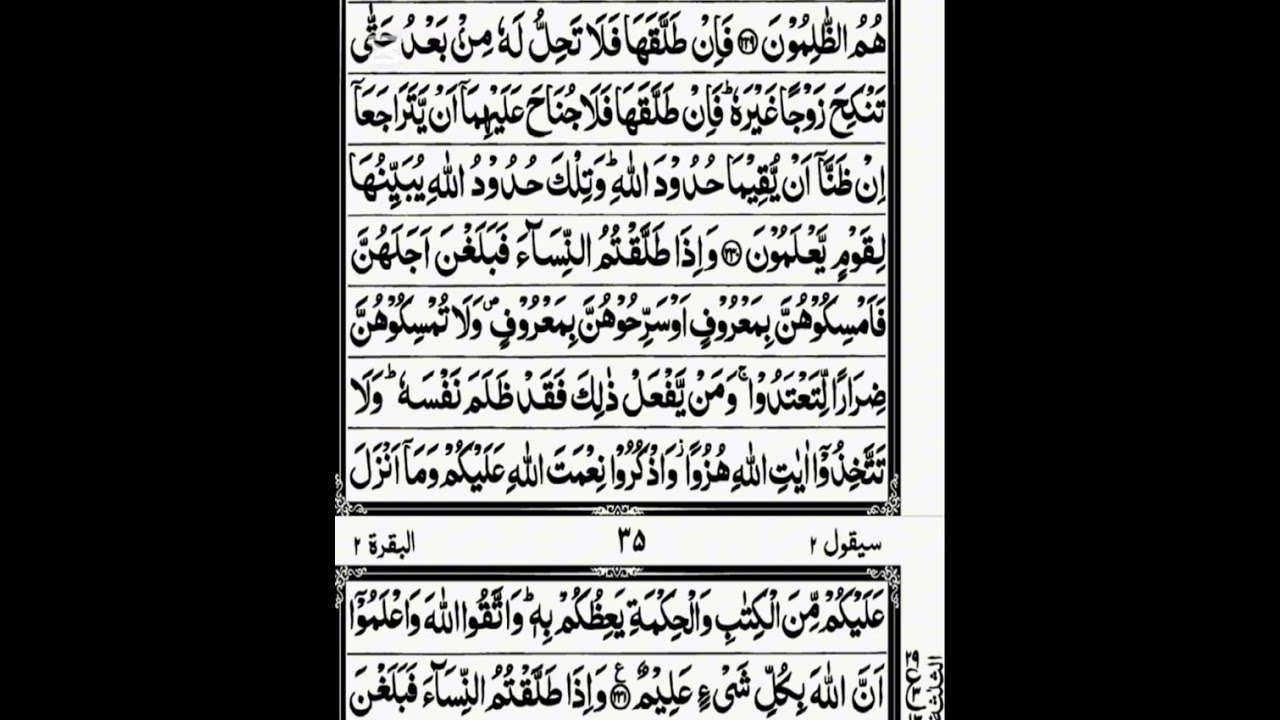 هُمُ الظّٰلِمُوْنَ ﴿۲۲۹﴾ فَاِنْ طَلَّقَهَا فَلَا تَحِلُّ لَهٗ مِنْۢ بَعْدُ حَتّٰى
تَنْكِحَ زَوْجًا غَيْرَهٗ ؕ فَاِنْ طَلَّقَهَا فَلَا جُنَاحَ عَلَيْهِمَاۤ اَنْ يَّتَرَاجَعَاۤ
اِنْ ظَنَّاۤ اَنْ يُّقِيْمَا حُدُوْدَ اللّٰهِ ؕ وَتِلْكَ حُدُوْدُ اللّٰهِ يُبَيِّنُهَا
لِقَوْمٍ يَّعْلَمُوْنَ ﴿۲۳۰﴾ وَاِذَا طَلَّقْتُمُ النِّسَآءَ فَبَلَغْنَ اَجَلَهُنَّ
فَاَمْسِكُوْهُنَّ بِمَعْرُوْفٍ اَوْ سَرِّحُوْهُنَّ بِمَعْرُوْفٍ ۪ وَلَا تُمْسِكُوْهُنَّ
ضِرَارًا لِّتَعْتَدُوْا ۚ وَمَنْ يَّفْعَلْ ذٰلِكَ فَقَدْ ظَلَمَ نَفْسَهٗ ؕ وَلَا
تَتَّخِذُوْۤا اٰيٰتِ اللّٰهِ هُزُوًا ؗ وَّاذْكُرُوْا نِعْمَتَ اللّٰهِ عَلَيْكُمْ وَمَاۤ اَنْزَلَ
سيقول ۲ ۳۵ البقرة ۲
عَلَيْكُمْ مِّنَ الْكِتٰبِ وَالْحِكْمَةِ يَعِظُكُمْ بِهٖ ؕ وَاتَّقُوا اللّٰهَ وَاعْلَمُوْۤا
اَنَّ اللّٰهَ بِكُلِّ شَیْءٍ عَلِيْمٌ ﴿۲۳۱﴾ ع وَاِذَا طَلَّقْتُمُ النِّسَآءَ فَبَلَغْنَ